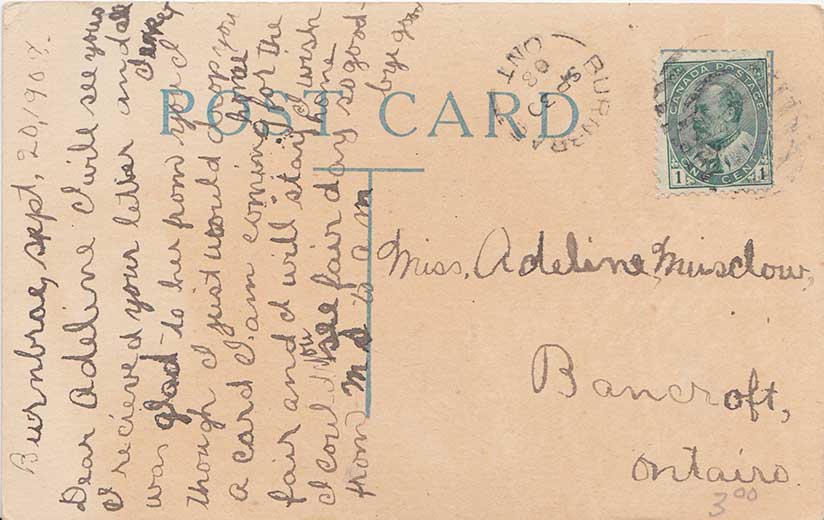 POST CARD
BURNBRAE
ONT
08
CANADA POSTAGE
1 ONE CENT 1
Miss, Adeline Musclow,
Bancroft,
Ontairo.
3 00
Burnbrae, sept, 20, 1908.
Dear Adeline I will see you
I recieved your letter and
was glad to her from you I
though I just would drop you
a card I am coming home for the
fair and I will stay I wish
I could see you fair day so good-
from M S to A M bye